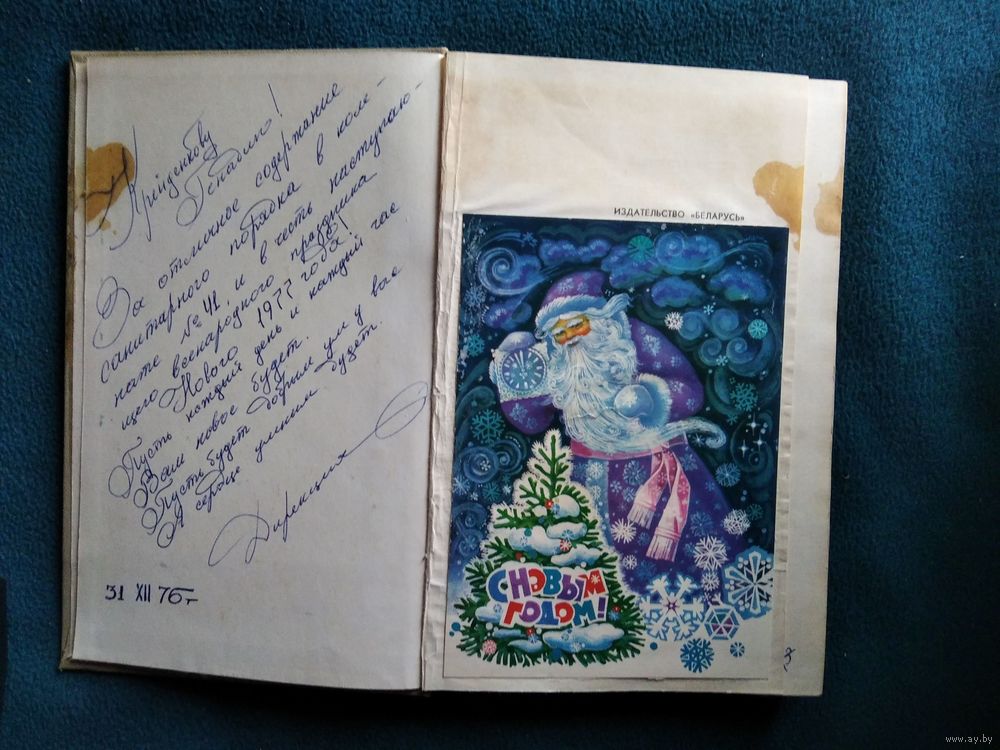 Крейденкову
Геннадию!
За отличное содержание
санитарного порядка в ком-
нате № 41, и в честь наступаю-
щего всенародного праздника
Нового 1977 года!
Пусть каждый день и каждый час
Вам новое будет.
Пусть будет добрым ум у вас
А сердце умным будет.
Дирекция
31 XII 76г
ИЗДАТЕЛЬСТВО «БЕЛАРУСЬ»
С НОВЫМ
ГОДОМ!
www.ay.by